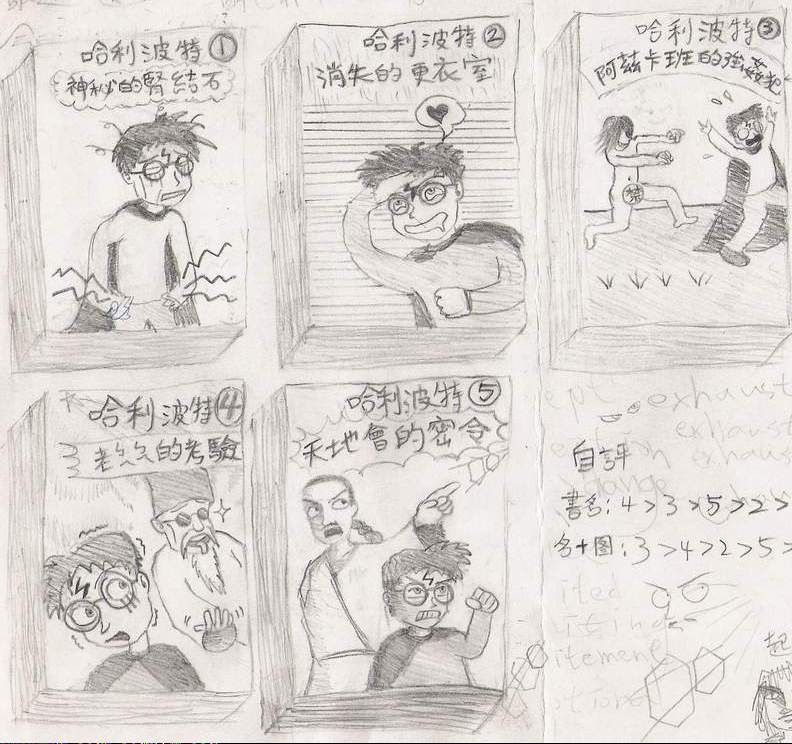 哈利波特①
神秘的腎結石
哈利波特②
消失的更衣室
哈利波特③
阿茲卡班的強姦犯
禁
哈利波特④
的考驗
哈利波特⑤
天地會的密令
ept exhaust
exhaust
exhaus
自評
書名:4>3>5>2>
名+图:3>4>2>5>
ited
itement
起